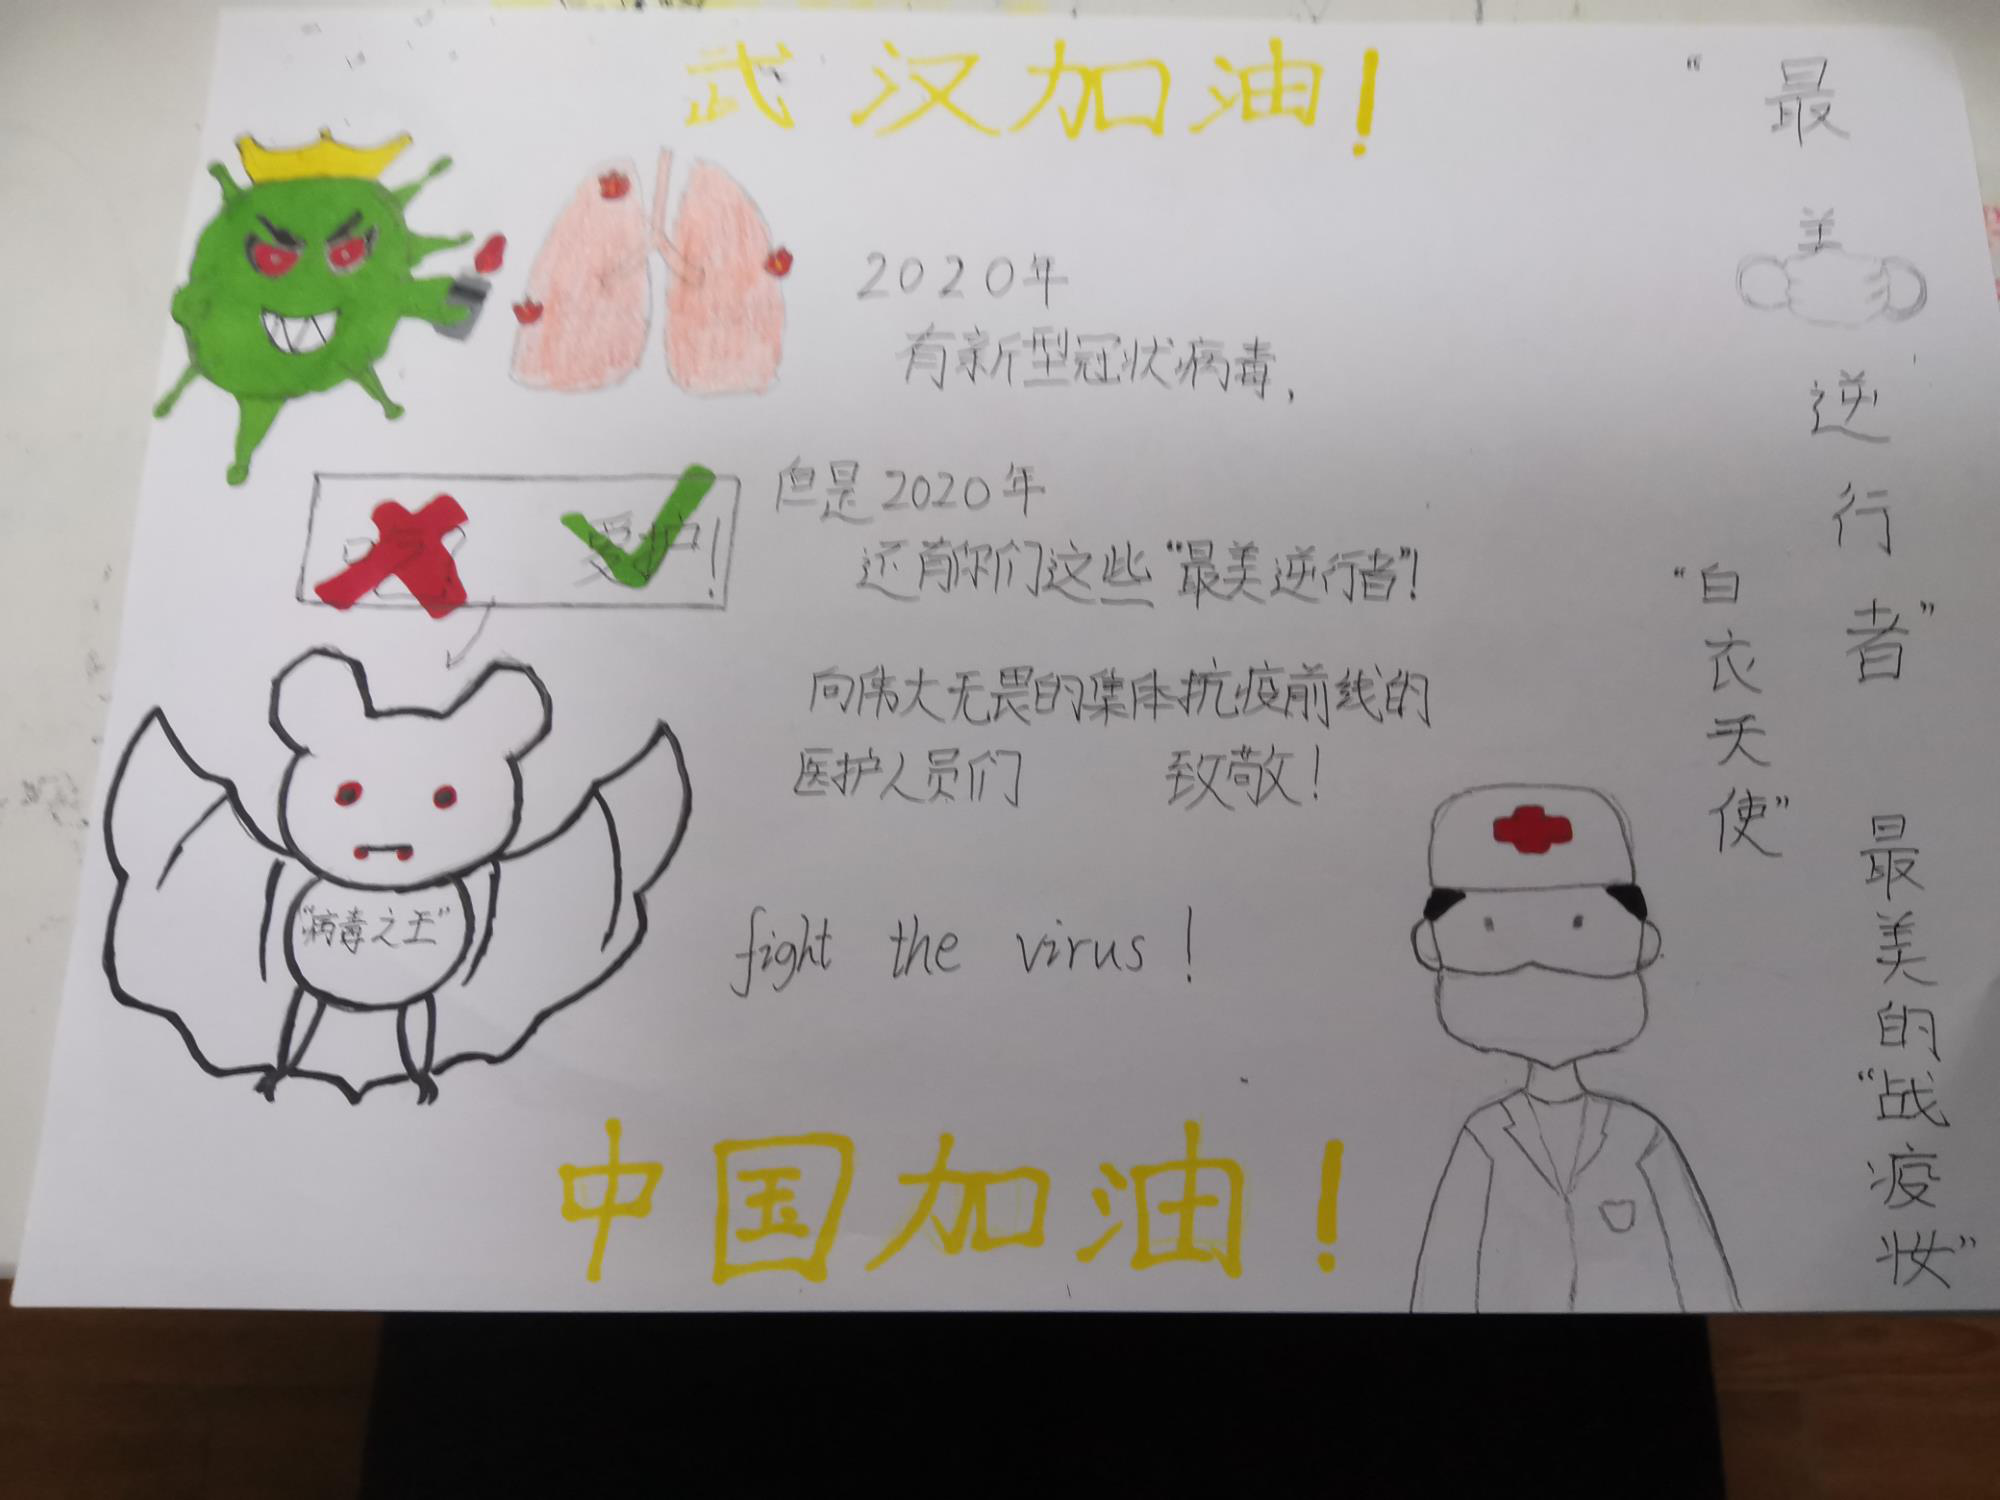 武汉加油！
2020年
有新型冠状病毒，
但是2020年
还有你们这些“最美逆行者”！
向伟大无畏的集体抗疫前线的
医护人员们 致敬！
受护！
“病毒之王”
fight the virus！
中国加油！
“最美逆行者”
“白衣天使”
最美的“战疫妆”